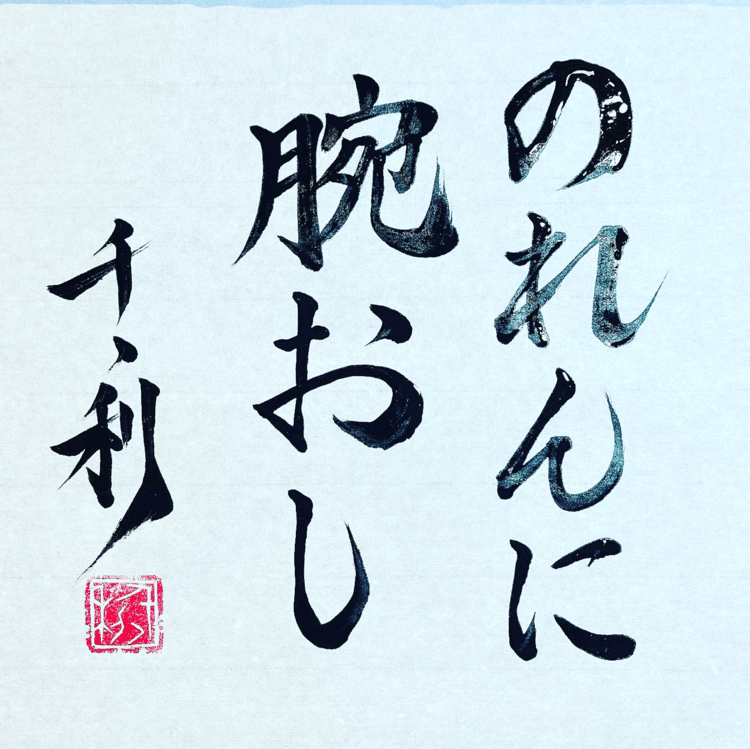 のれんに
腕おし
千、利